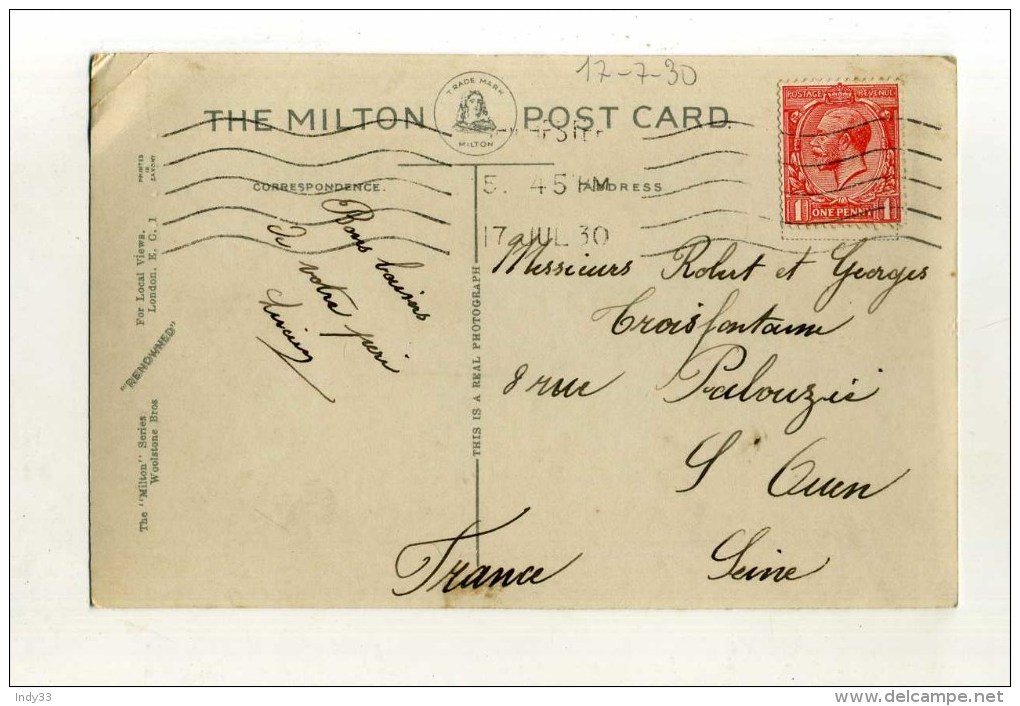 17-7-30
THE MILTON
TRADE MARK
MILTON
POST CARD
CORRESPONDENCE.
ADDRESS
5. 45 PM
17 JUL 30
POSTAGE REVENUE
1 ONE PENNY 1
Bons baisers
de votre
Messieurs Robert et Georges
Troisfontaine
8 rue Palouzié
St Ouen
Seine
France
THIS IS A REAL PHOTOGRAPH
PRINTED
IN
SAXONY
For Local Views.
London, E. C. 1
"RENOWNED"
The "Milton" Series
Woolstone Bros
Indy33
www.delcampe.net